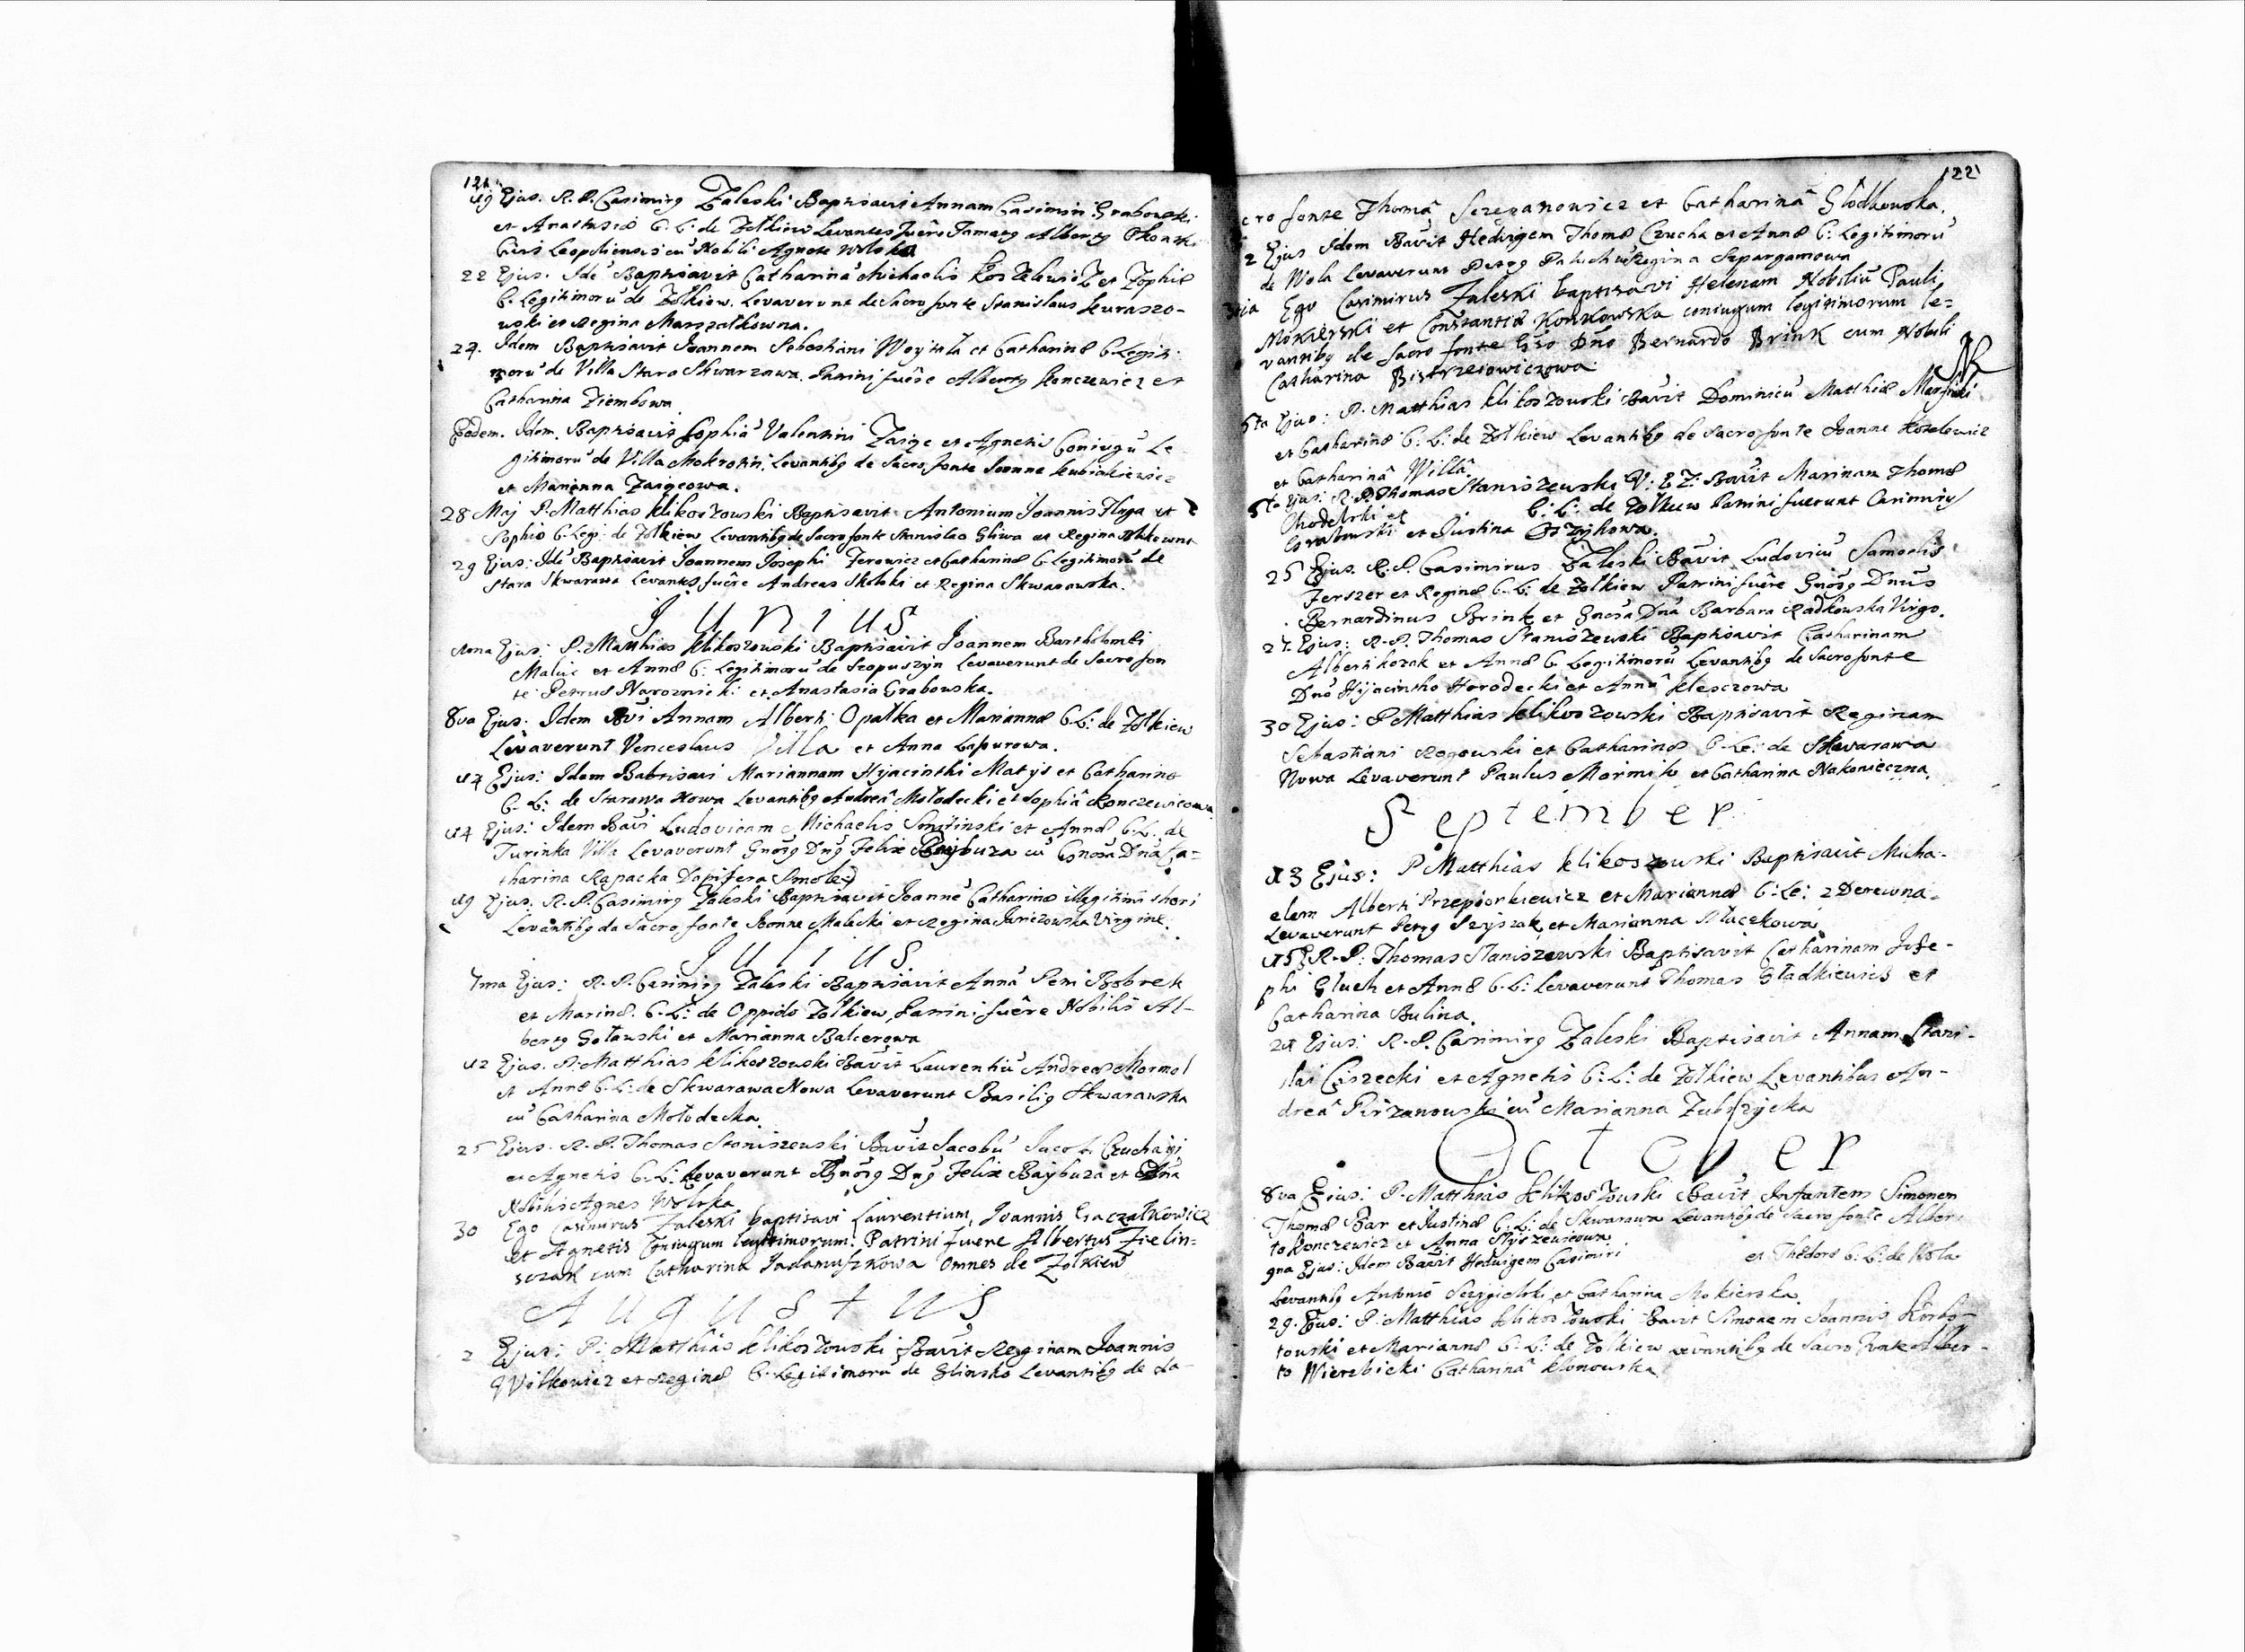 121
19 Ejus. R. P. Casimirg Zaleski Baptisavit Annam Casimiri Grabowski
et Anastasiæ C. L. de Zolkiew Levantes fuêre Famatg Albertg
Civis Leopoliensis cũ Nobili Agnete Wolska
22 Ejus. Idẽ Baptisavit Catharinã Michaelis Koszelewicz et Zophiæ
C. Legitimorũ de Zolkiew. Levaverunt de Sacro fonte Stanislaus Kuraszo-
wski et Regina Marszalkowna.
24. Idem Baptisavit Joannem Sebastiani Woytala et Catharinæ C. Legiti-
morũ de Villa Stara Skwarzawa. Patrini fuêre Albertg Konczewicz et
Catharina Ziembowa
Eodem. Idem. Baptisavit Sophiã Valentini Zaięc et Agnetis Coniugũ Le-
gitimorũ de Villa Mokrotin. Levantibg de Sacro fonte Joanne Kubiakiewicz
et Marianna Zaięcowa.
28 Maj P. Matthias Klikoszowski Baptisavit Antonium Joannis Fluga et
Sophiæ C. Legi. de Zolkiew Levantibg de Sacro fonte Stanislao Gliwa et Regina
29 Ejus: Idẽ Baptisavit Joannem Josephi Ferowicz et Catharinæ C. Legitimorũ de
Stara Skwarawa Levantes fuêre Andreas Skolski et Regina Skwarawska.
Junius
Nona Ejus: P. Matthias Klikoszowski Baptisavit Joannem Bartholomæi
Maluc et Annæ C. Legitimorũ de Scopuszyn Levaverunt de Sacro fon
te Petrus Naroznicki et Anastasia Grabowska.
8va Ejus: Idem Bvi Annam Alberti Opalka et Mariannæ C. L: de Zolkiew
Levaverunt Venceslaus Villa et Anna Lapurowa.
14 Ejus: Idem Babtisavi Mariannam Hyjacinthi Matys et Catharinæ
C. L: de Starawa Nowa Levantibg Andreâ Molodecki et Sophiâ Konczewicowa
14 Ejus: Idem Bavi Ludovicam Michaelis Smitinski et Annæ C. L. de
Turinka Villa Levaverunt Gnosg Dng Felix Baybuza cũ Gnosa Dna Ca-
tharina Rapacka Dapifera Smole:
19 Ejus: R. P. Casimirg Zaleski Baptisavit Joannẽ Catharinæ illegitimi thori
Levantibg da Sacro fonte Joanne Malecki et Regina Juriczowska Virgine.
Julius
7ma Ejus: R. P. Casimirg Zaleski Baptisavit Annã Semi Bobrek
et Marinæ. C. L: de Oppido Zolkiew, Patrini fuêre Nobilis Al-
bertg Golawski et Marianna Balcerowa
12 Ejus. P. Matthias Klikoszowski Bavit Laurentiũ Andreæ Mormol
et Annæ C. L: de Skwarawa Nowa Levaverunt Basilig Skwarawska
cũ Catharina Molodecka.
25 Ejus. R. P. Thomas Staniszewski Bavit Jacobũ Jacobi Czuchayi
et Agnetis C. L: Levaverunt Gnosg Dng Felix Baybuza et Dna
Nobilis Agnes Wolska
30 Ego Casimirus Zaleski baptisavi Laurentium, Joannis Gaczalkowicz
et Agnetis Coniugum legitimorum. Patrini fuere Albertus Fielin-
sczak cum Catharina Jadamuszkowa Omnes de Zolkiew
Augustus
2 Ejus: P. Matthias Klikoszowski Bavit Reginam Joannis
Wilkowicz et Reginæ C. Legitimorũ de Glinsko Levantibg de Sa-
122
cro fonte Thomâ Sczepanowicz et Catharinâ Glodkowska.
2 Ejus Idem Bavit Hedvigem Thomæ Czucha et Annæ C: Legitimorũ
de Wola Levaverunt Petrg Paluch Regina Szpargamowa
3tia Ego Casimirus Zaleski baptisavi Helenam Nobiliũ Pauli
Mokierski et Constantiæ Konkowska coniugum legitimorum le-
vantibg de Sacro fonte Gso Dno Bernardo Brink cum Nobili
Catharina Bistrzeiowiczowa
5ta Ejus: P. Matthias Klikoszowski Bavit Dominicũ Matthiæ
et Catharinæ C: L: de Zolkiew Levantibg de Sacro fonte Joanne Koselewicz
et Catharinâ Willâ
5ta Ejus: R. P. Thomas Staniszewski V. E Z. Bavit Marinam Thomæ
Chodelski et C: L: de Zolkiew Patrini fuerunt Casimirg
et Justina
25 Ejus. R. P. Casimirus Zaleski Bavit Ludovicũ Samoelis
Ferszer et Reginæ C. L: de Zolkiew Patrini fuêre Gnosg Dnus
Bernardinus Brink et Gnosa Dna Barbara Radkowska Virgo.
27. Ejus: R. P. Thomas Staniszewski Baptisavit Catharinam
Alberti Kozak et Annæ C Legitimorũ Levantibg de Sacro fonte
Dno Hyjacintho Horodecki et Annâ Klesczowa
30 Ejus: P. Matthias Klikoszowski Baptisavit Reginam
Sebastiani Rogowski et Catharinæ C. L: de Skwarawa
Nowa Levaverunt Paulus Mormilo et Catharina Nakonieczna.
September
13 Ejus: P Matthias Klikoszowski Baptisavit Micha-
elem Alberti Przepiorkiewicz et Mariannæ C: Le: z Derewna.
Levaverunt Petrg Szyszak et Marianna Kluczkowa
15 R. P: Thomas Staniszewski Baptisavit Catharinam Jose-
phi Gluch et Annæ C. L: Levaverunt Thomas Gladkiewicz et
Catharina Bulina.
21 Ejus: R. P. Casimirg Zaleski Baptisavit Annam Stani-
slai Ciszecki et Agnetis C: L: de Zolkiew Levantibus An-
dreâ Pirzanowski cũ Marianna Zubrzycka
October
8va Ejus: P. Matthias Klikoszowski Bavit Infantem Simonem
Thomæ Bar et Justinæ C. L: de Skwarawa Levantibg de Sacro fonte Alber-
to Konczewicz et Anna Slyszewicowa
9na Ejus: Idem Bavit Hedvigem Casimiri et Thedoræ C. L: de Wola
Levantibg Antonio Sczygielski et Catharina Mokierska.
29. Ejus: P. Matthias Klikoszowski Bavit Simonem Joannis Korbs-
towski et Mariannæ C. L: de Zolkiew Levantibg de Sacro fonte Alber-
to Wierzbicki Catharinâ Klonowska